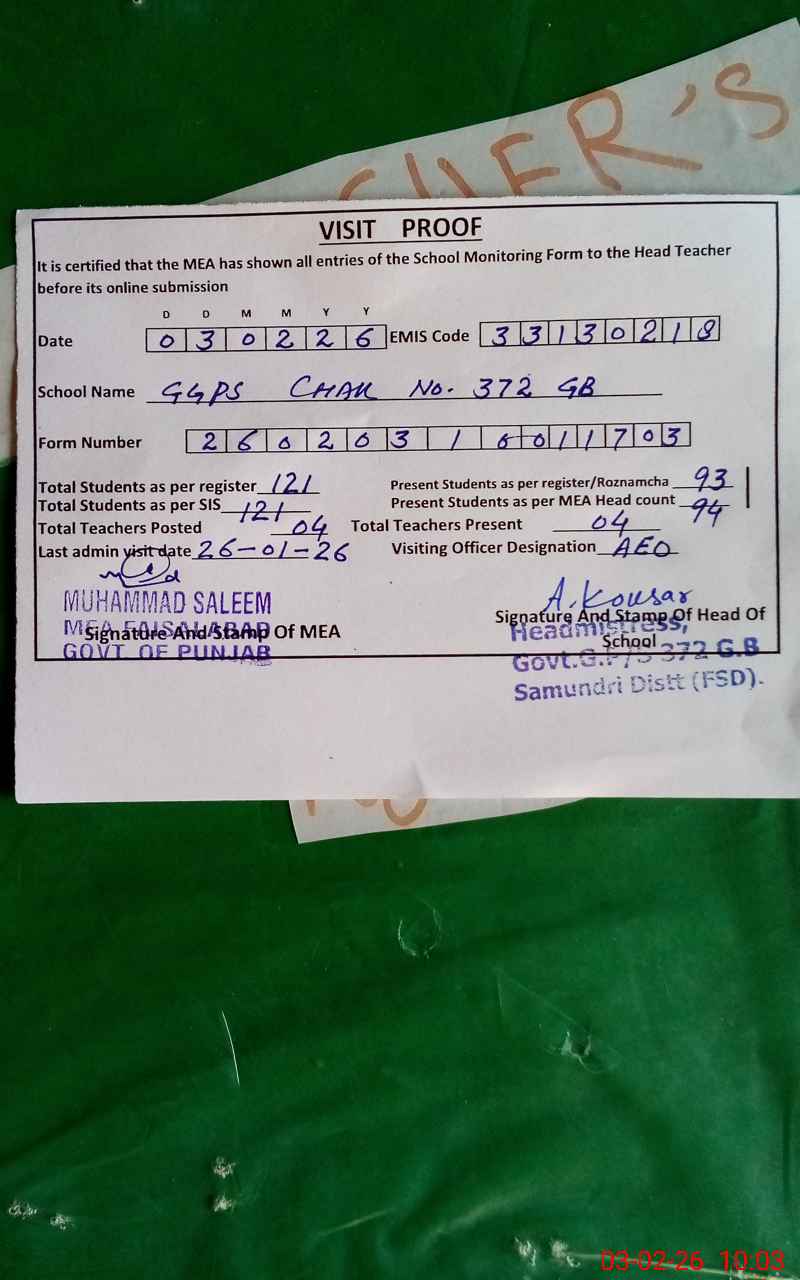 CHER'S
VISIT PROOF
It is certified that the MEA has shown all entries of the School Monitoring Form to the Head Teacher
before its online submission
D D M M Y Y
Date 0 3 0 2 2 6 EMIS Code 3 3 1 3 0 2 1 8
School Name GGPS CHAK No. 372 GB
Form Number 2 6 0 2 0 3 1 0 0 1 1 7 0 3
Total Students as per register 121 Present Students as per register/Roznamcha 93
Total Students as per SIS 121 Present Students as per MEA Head count 94
Total Teachers Posted 04 Total Teachers Present 04
Last admin visit date 26-01-26 Visiting Officer Designation AEO
MUHAMMAD SALEEM
MEA FAISALABAD
GOVT OF PUNJAB
Signature And Stamp Of MEA
A. Kousar
Signature And Stamp Of Head Of
School
Headmistress,
Govt.G.P/S 372 G.B
Samundri Distt (FSD).
03-02-26 10:03